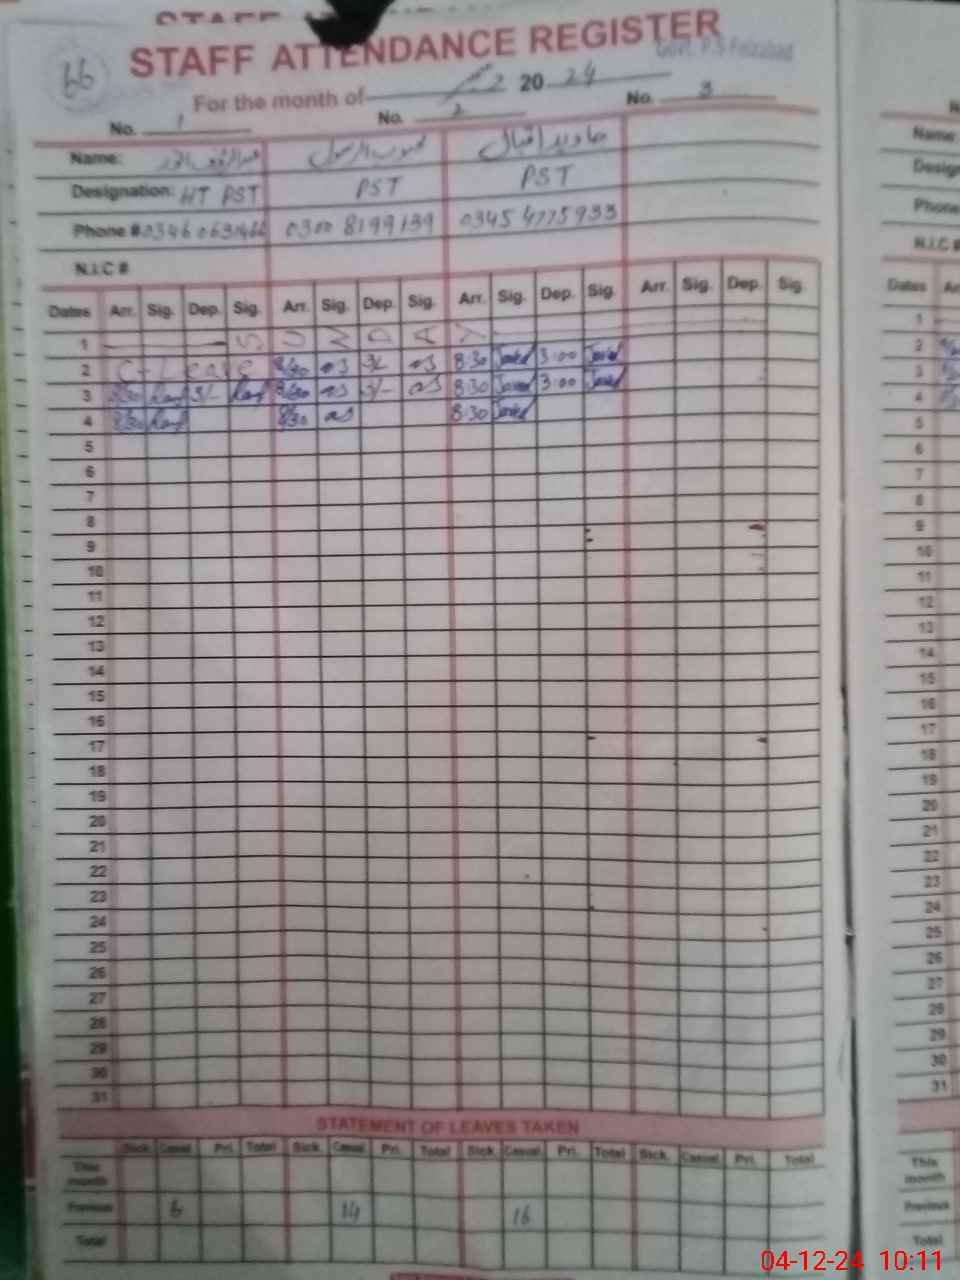 STAFF ATTENDANCE REGISTER
66
Govt. P.S Faizabad
For the month of 2024
No. 1 No. 2 No. 3
Name: محبوب الرسول جاوید اقبال
Designation: HT PST PST PST
Phone # 0300 8199139 0345 4775933
N.I.C #
Dates Arr. Sig. Dep. Sig. Arr. Sig. Dep. Sig. Arr. Sig. Dep. Sig. Arr. Sig. Dep. Sig.
1 S U N D A Y
2 C-Leave 8/30 3/- 8:30 Javed 3:00 Javed
3 8/30 3/- 8/30 3/- 8:30 Javed 3:00 Javed
4 8/30 8/30 8:30 Javed
5
6
7
8
9
10
11
12
13
14
15
16
17
18
19
20
21
22
23
24
25
26
27
28
29
30
31
STATEMENT OF LEAVES TAKEN
Sick. Casual Pri. Total Sick. Casual Pri. Total Sick. Casual Pri. Total Sick. Casual Pri. Total
This month
Previous 6 14 16
Total
Name:
Design
Phone
N.I.C #
Dates
1
2
3
4
5
6
7
8
9
10
11
12
13
14
15
16
17
18
19
20
21
22
23
24
25
26
27
28
29
30
31
This month
Previous
Total
04-12-24 10:11